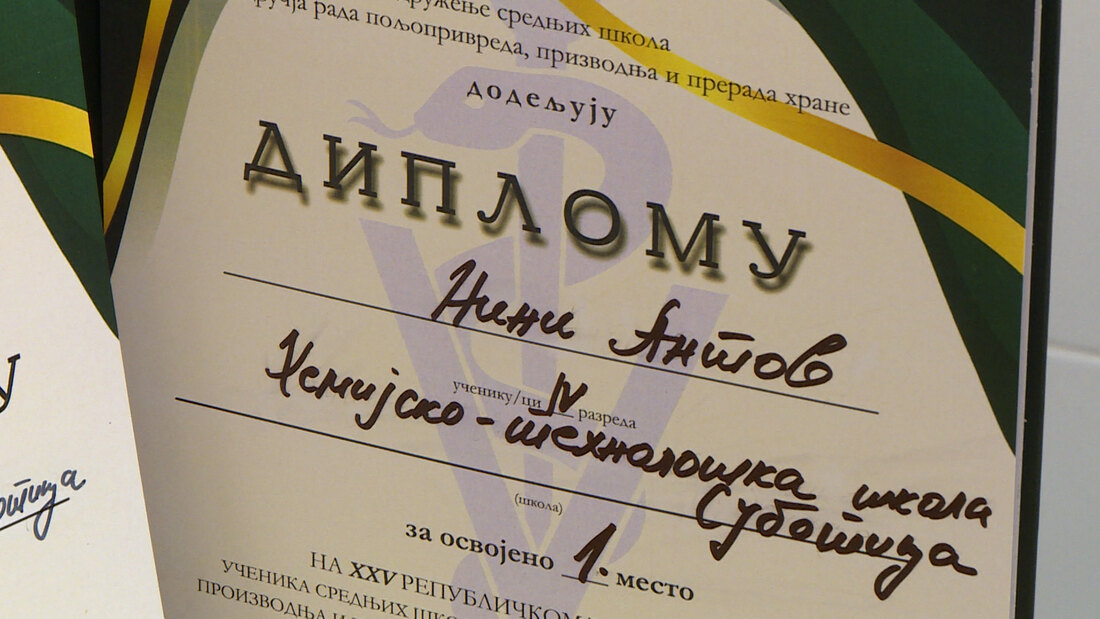 дружење средњих школа
ручја рада пољопривреда, призводња и прерада хране
додељују
ДИПЛОМУ
Нини Антов
ученику/ци IV разреда
Хемијско-технолошка школа
Суботица
(школа)
за освојено 1. место
НА XXV РЕПУБЛИЧКОМ
УЧЕНИКА СРЕДЊИХ ШКО
ПРОИЗВОДЊА И
У
отица